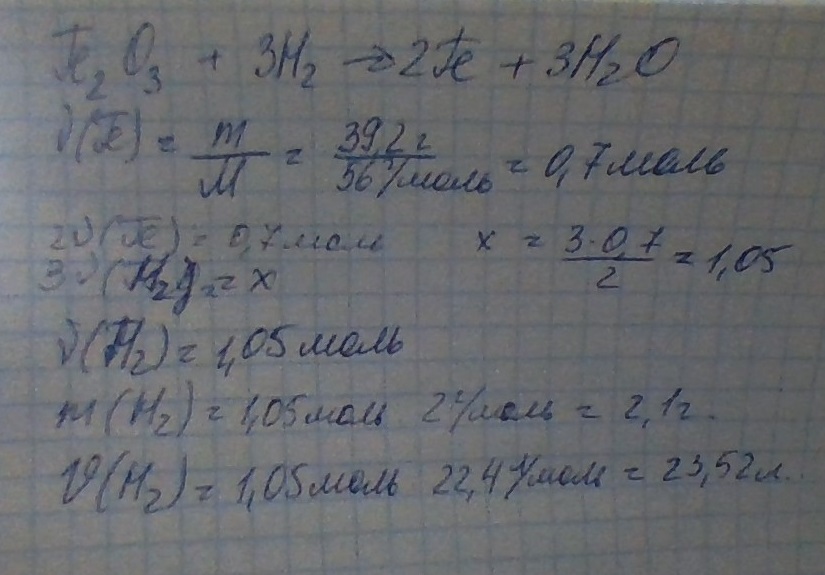 Fe₂O₃ + 3H₂ → 2Fe + 3H₂O
ν(Fe) = m/M = 39,2 г / 56 г/моль = 0,7 моль
2ν(Fe) = 0,7 моль x = 3·0,7/2 = 1,05
3ν(H₂) = x
ν(H₂) = 1,05 моль
m(H₂) = 1,05 моль 2 г/моль = 2,1 г.
V(H₂) = 1,05 моль 22,4 л/моль = 23,52 л.